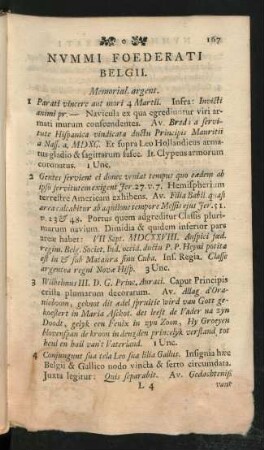 167
NVMMI FOEDERATI
BELGII.
Memorial. argent.
1 Parati vincere aut mori 4 Martii. Infra: Invicti
animi pr. — Navicula ex qua egrediuntur viri ar-
mati murum conscendentes. Av. Breda a servi-
tute Hispanica vindicata ductu Principis Mauritii
a Nass. a. MDXC. Et supra Leo Hollandicus arma-
tus gladio & sagittarum fasce. It. Clypeus armorum
coronatus. 1 Unc.
2 Gentes servient ei donec veniat tempus quo eadem ab
ipso servitutem exigent Jer. 27. v. 7. Hemisphærium
terrestre Americam exhibens. Av. Filia Babil. quasi
area calcabitur ab aquilone tempore Messis ejus Jer. 51.
v. 23 & 48. Portus quem aggreditur Classis pluri-
marum navium. Dimidia & quidem inferior pars
aversæ habet: VII Sept. MDCXXVIII. Auspici fœd.
regim. Belg. Societ. Ind. occid. ductu P. P. Heynii potita
est in & sub Matanca sinu Cuba. Inf. Regia. Classe
argentea regni Nova Hisp. 3 Unc.
3 Wilhelmus III. D. G. Princ. Aurai. Caput Principis
crista plumarum decoratum. Av. Allag d'Ora-
nieboom, gehont dit edel spruitie wird van Gott ge-
koestert in Maria Aschot. det leeft de Vader na zyn
Doodt, gelyk een Fenix in zyn Zoon, Hy Groeyen
Hovenspan de kroon in deugden princelyk verstand, tot
heul en heil van't Vaterland. 1 Unc.
4 Conjungunt sua tela Leo sua lilia Gallus. Insignia hæc
Belgii & Gallico nodo vincta & serto circumdata.
Juxta legitur: Quis separabit. Av. Gedachteniss
L 4 vant